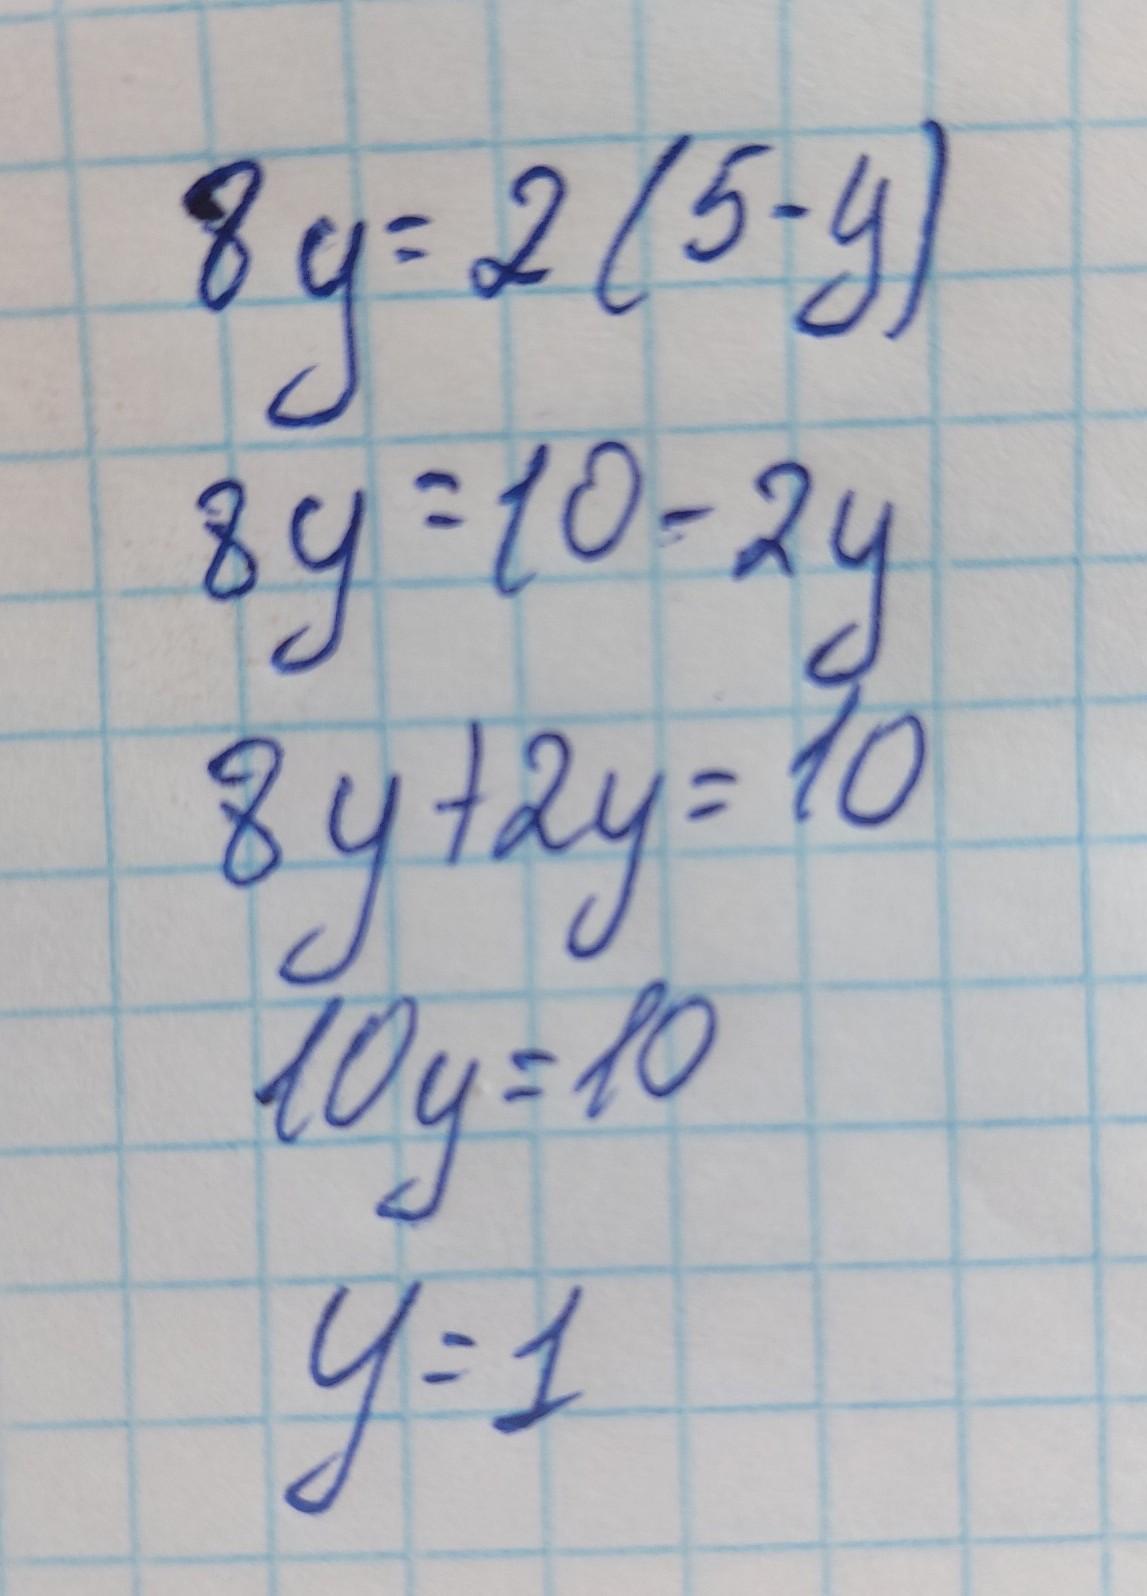 8y=2(5-y)
8y=10-2y
8y+2y=10
10y=10
y=1